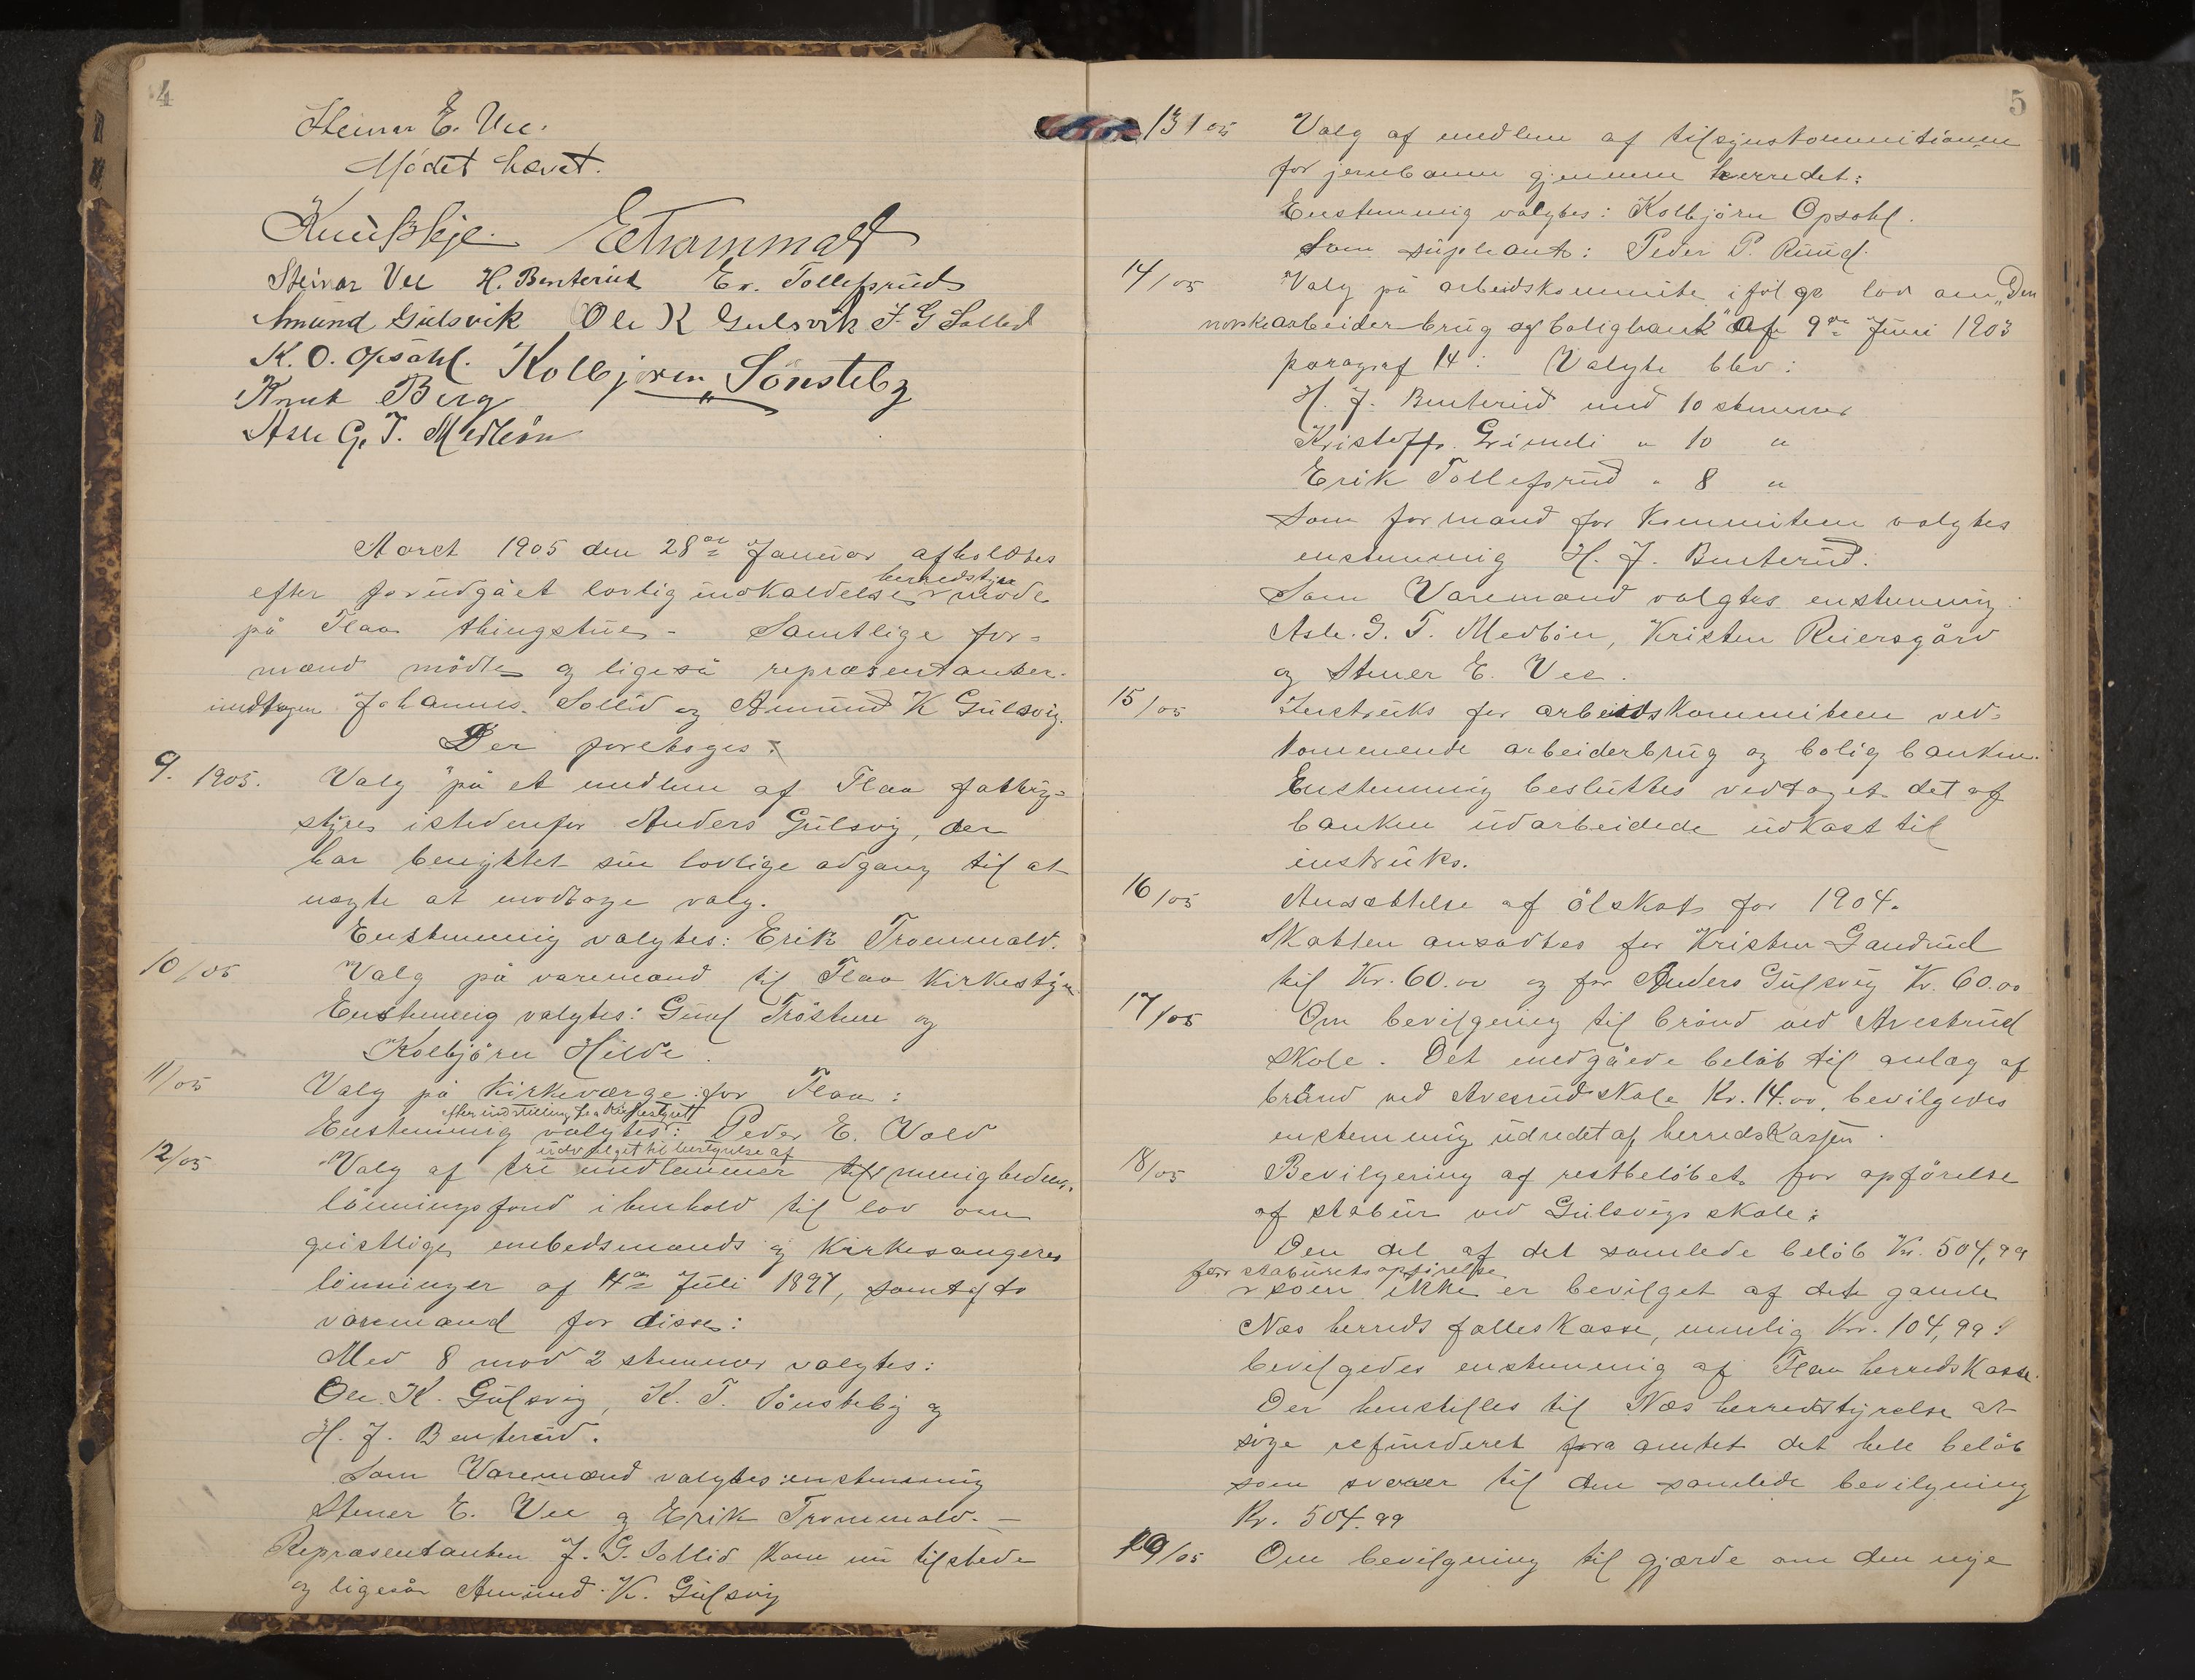 4
Steinar E. Vee.
Mödet hævet.
Knut Skje. E Trommald
Steinar Vee H. Benterud Er. Tollefsrud
Amund Gulsvik Ole K Gulsvik J G Sollid
K. O. Opsahl. Kolbjørn Sönsteby
Knut Berg
Asle G. T. Medbön
Aaret 1905 den 28de Januar afholdtes
herredstyre
efter forudgået lovlig indkaldelse møde
på Flaa thingstue - Samtlige for=
mænd mödte og ligeså repræsentanter.
undtagen Johannes Sollid og Amund K Gulsvig.
Der foretoges:
9. 1905. Valg på et medlem af Flaa fattig=
styre istedenfor Anders Gulsvig, der
har benyttet sin lovlige adgang til at
nægte at modtage valg.
Enstemmig valgtes: Erik Trommald.
10/05 Valg på varemænd til Flaa Kirkestyre
Enstemmig valgtes: Gunl Tröstem og
Kolbjörn Hilde.
11/05 Valg på Kirkeværge for Flaa:
efter indstilling fra Kirkestyret
Enstemmig valgtes: Peder E. Vold
udvalget til bestyrelse af
12/05 Valg af tre medlemmer til menighedens
lönningsfond i henhold til lov om
geistlige embedsmænds og Kirkesangeres
lönninger af 14de Juli 1897, samt af to
varemænd for disse:
Med 8 mod 2 stemmer valgtes:
Ole K. Gulsvig, K. T. Sönsteby og
H. J. Benterud.
Som Varemænd valgtes enstemmig
Stener E. Vee og Erik Trommald. -
Repræsentanten J. G. Sollid kom nu tilstede
og ligeså Amund K. Gulsvig
5
13/05 Valg af medlem af tilsynskommitionen
for jernbanen gjennem herredet:
Enstemmig valgtes: Kolbjörn Opsahl.
Som supleant: Peder P. Ruud.
14/05 Valg på arbeidskommite ifölge lov om „Den
norske arbeiderbrug og boligbank" af 9de Juni 1903
paragraf 14: Valgte blev:
H. J. Benterud med 10 stemmer
Kristoffer Grimeli " 10 "
Erik Tollefsrud " 8 "
Som formand for Kommiteen valgtes
enstemmig H. J. Benterud.
Som Varemænd valgtes enstemmig:
Asle. G. T. Medbön, Kristen Reiersgård
og Stener E. Vee.
15/05 Instruks for arbeidskommiteen ved=
kommende arbeiderbrug og bolig banken.
Enstemmig besluttes vedtaget det af
banken udarbeidede udkast til
instruks.
16/05 Ansættelse af ölskat for 1904.
Skatten ansattes for Kristen Gandrud
til Kr. 60.00 og for Anders Gulsvig Kr. 60.00
17/05 Om bevilgning til brönd ved Avestrud
skole. Det medgåede belöb til anlæg af
brönd ved Avesrud skole Kr. 14.00, bevilgedes
enstemmig udredet af herredskassen.
18/05 Bevilgning af restbelöbet for opförelse
af stabur ved Gulsvigs skole:
Den del af det samlede belöb Kr. 504,99
for staburets opförelse
som ikke er bevilget af det gamle
Næs herreds fælleskasse, nemlig Kr. 104,99:
bevilgedes enstemmig af Flaa herredskasse.
Der henstilles til Næs herredstyrelse at
söge refunderet fra amtet det hele belöb
som svarer til den samlede bevilgning
Kr. 504.99
19/05 Om bevilgning til gjærde om den nye